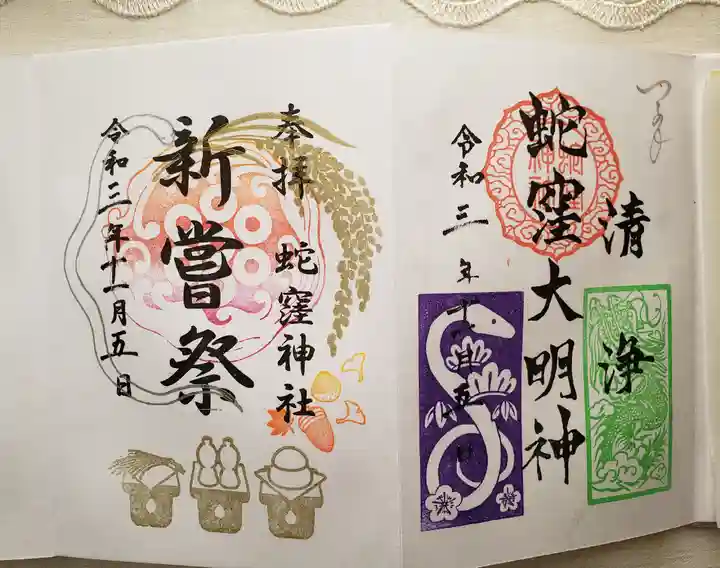 清浄
蛇窪大明神
令和三年十一月五日
奉拝
蛇窪神社
新嘗祭
令和三年十一月五日